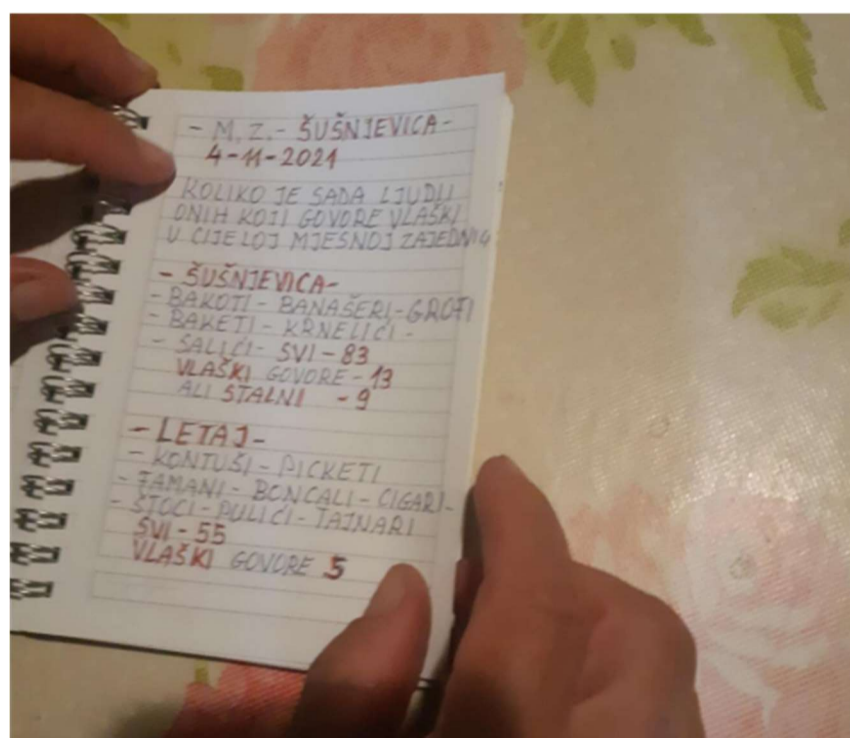 - M. Z. - ŠUŠNJEVICA -
4-11-2021
KOLIKO JE SADA LJUDI
ONIH KOJI GOVORE VLAŠKI
U CIJELOJ MJESNOJ ZAJEDNIC
- ŠUŠNJEVICA -
- BAKOTI - BANAŠERI - GROTI
- BAKETI - KRNELIĆI -
- SALIĆI - SVI - 83
VLAŠKI GOVORE - 13
ALI STALNI - 9
- LETAJ -
- KONTUŠI - PICKETI
- ZAMANI - BONCALI - CIGARI -
- ŠTOCI - PULIĆI - TAJNARI
SVI - 55
VLAŠKI GOVORE 5